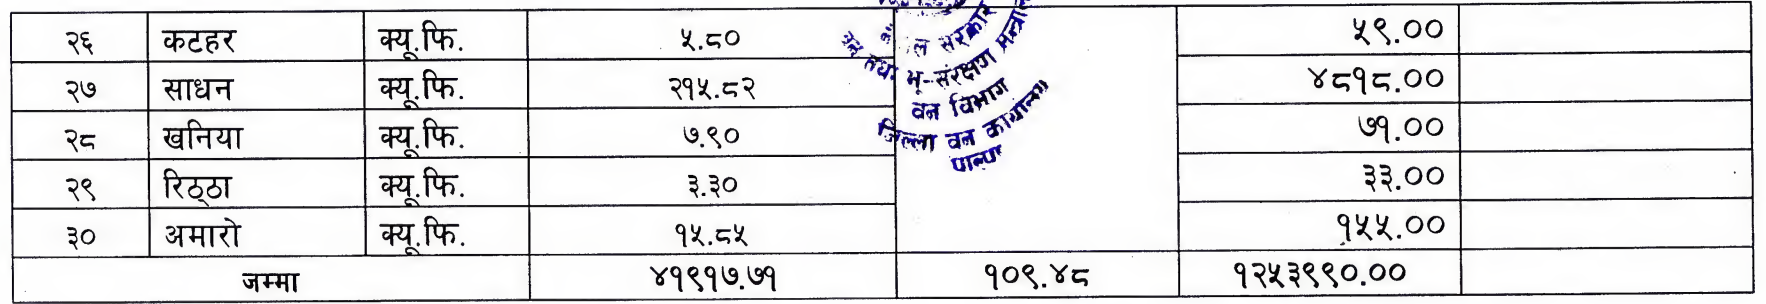 २६ कटहर क्यू.फि. ५.८० ५९.००
२७ साधन क्यू.फि. २१५.८२ ४८१८.००
२८ खनिया क्यू.फि. ७.९० ७१.००
२९ रिठ्ठा क्यू.फि. ३.३० ३३.००
३० अमारो क्यू.फि. १५.८५ १५५.००
जम्मा ४१९१७.७१ १०९.४८ १२५३९९०.००
सरकार
वन तथा भू-संरक्षण मन्त्रा
वन विभाग
जिल्ला वन कार्यालय
पाल्पा